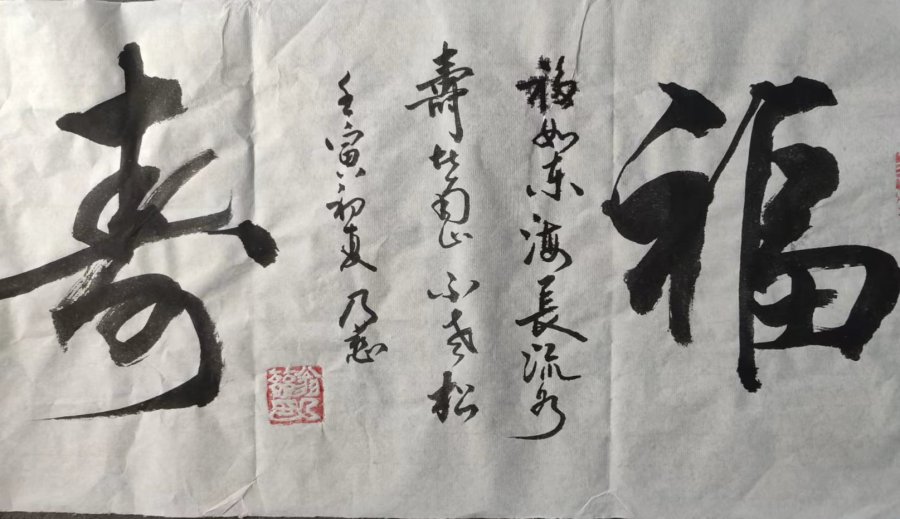 福
福如东海長流水
壽比南山不老松
壬寅初夏 乃慈
寿